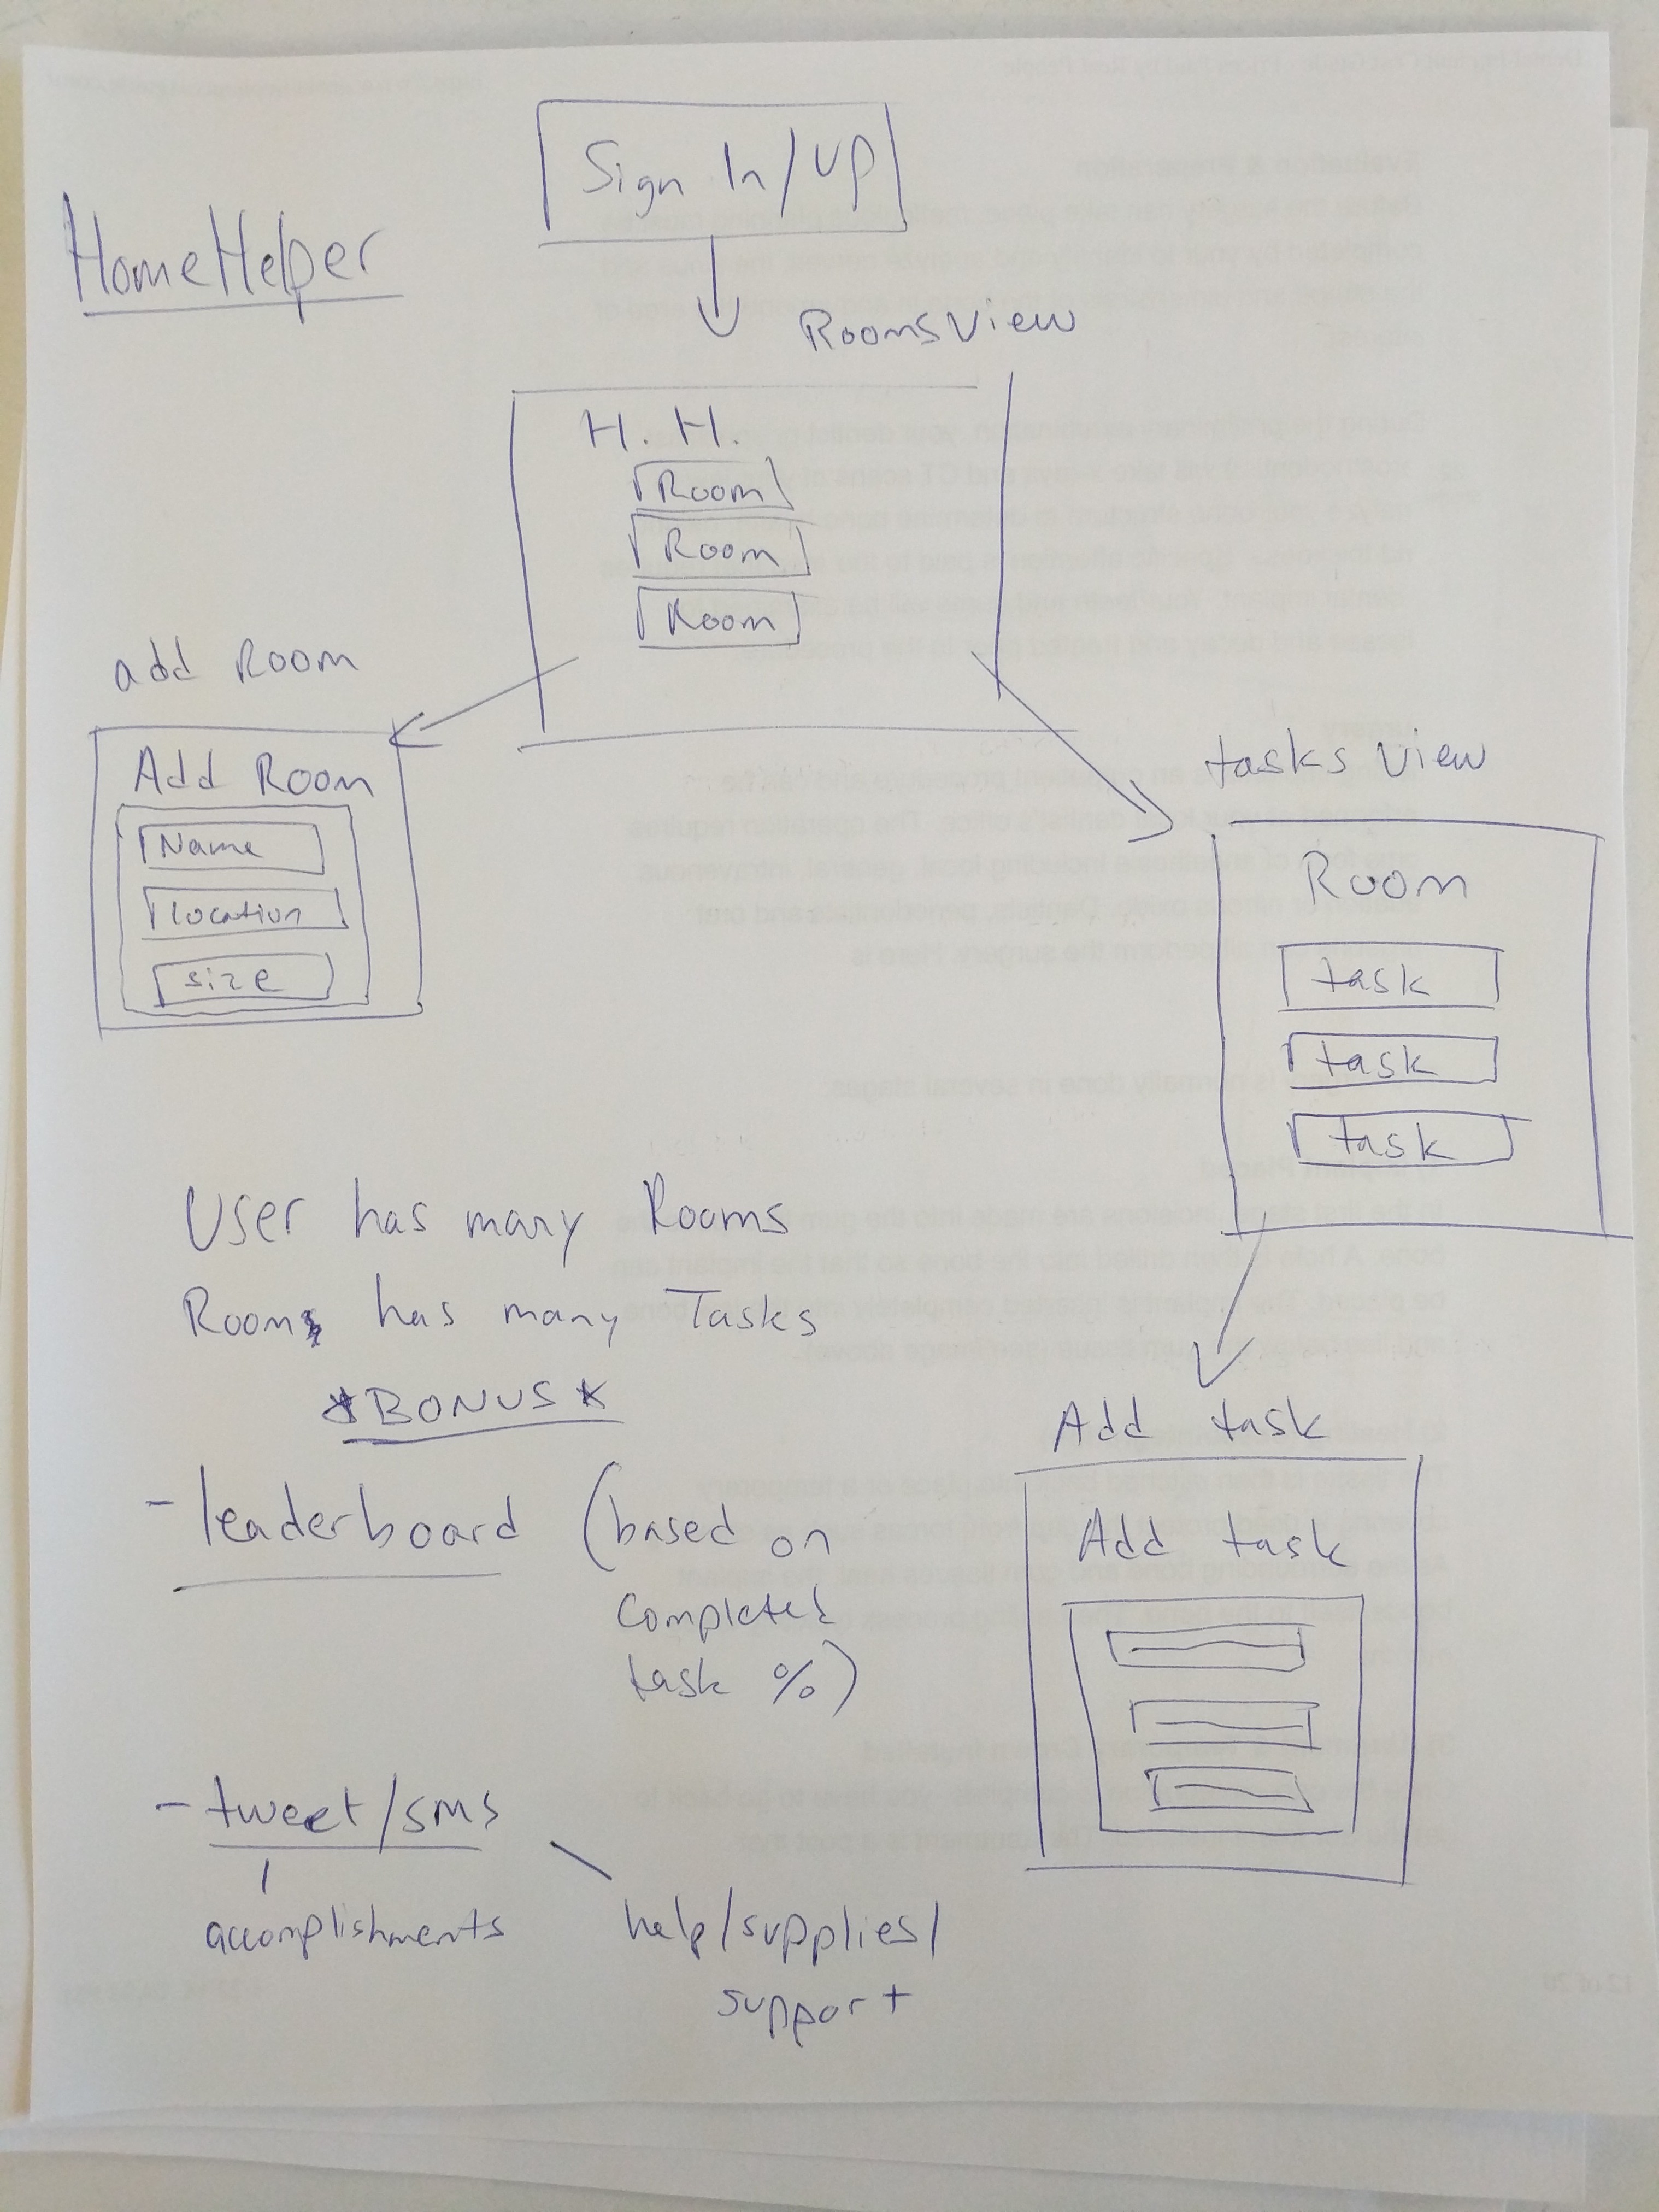 Sign In/Up
HomeHelper
RoomsView
H. H.
Room
Room
Room
add Room
Add Room
Name
location
size
tasks view
Room
task
task
task
User has many Rooms
Room has many Tasks
*BONUS*
- leaderboard (based on
completed
task %)
Add task
Add task
- tweet/sms
accomplishments
help/supplies/
support